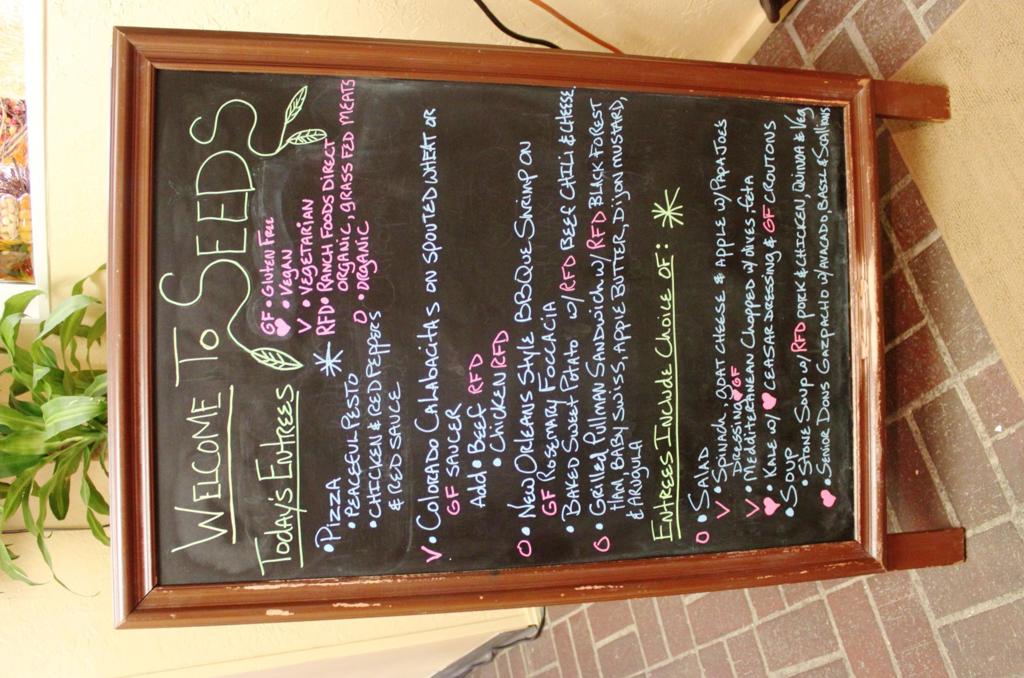 WELCOME TO SEEDS
TODAY'S ENTREES
GF • GLUTEN FREE
♥ • VEGAN
V • VEGETARIAN
RFD • RANCH FOODS DIRECT
ORGANIC, GRASS FED MEATS
O • ORGANIC
• PIZZA
• PEACEFUL PESTO
• CHICKEN & RED PEPPERS
& RED SAUCE
V • COLORADO CALABACITAS ON SPOUTED WHEAT OR
GF SAUCER
ADD • BEEF RFD
• CHICKEN RFD
O • NEW ORLEANS STYLE BBQUE SHRIMP ON
GF ROSEMARY FOCCACIA
• BAKED SWEET POTATO w/ RFD BEEF CHILI & CHEESE
O • GRILLED PULLMAN SANDWICH w/ RFD BLACK FOREST
HAM, BABY SWISS, APPLE BUTTER, DIJON MUSTARD,
& ARUGULA
ENTREES INCLUDE CHOICE OF:
O • SALAD
V • SPINACH, GOAT CHEESE & APPLE w/ PAPA JOES
DRESSING ♥ GF
V • MEDITERANEAN CHOPPED w/ OLIVES, FETA
♥ • KALE w/ ♥ CEASAR DRESSING & GF CROUTONS
• SOUP
• STONE SOUP w/ RFD PORK & CHICKEN, QUINOA & VEG
♥ • SENOR DONS GAZPACHO w/ AVACADO BASIL & SCALLIONS